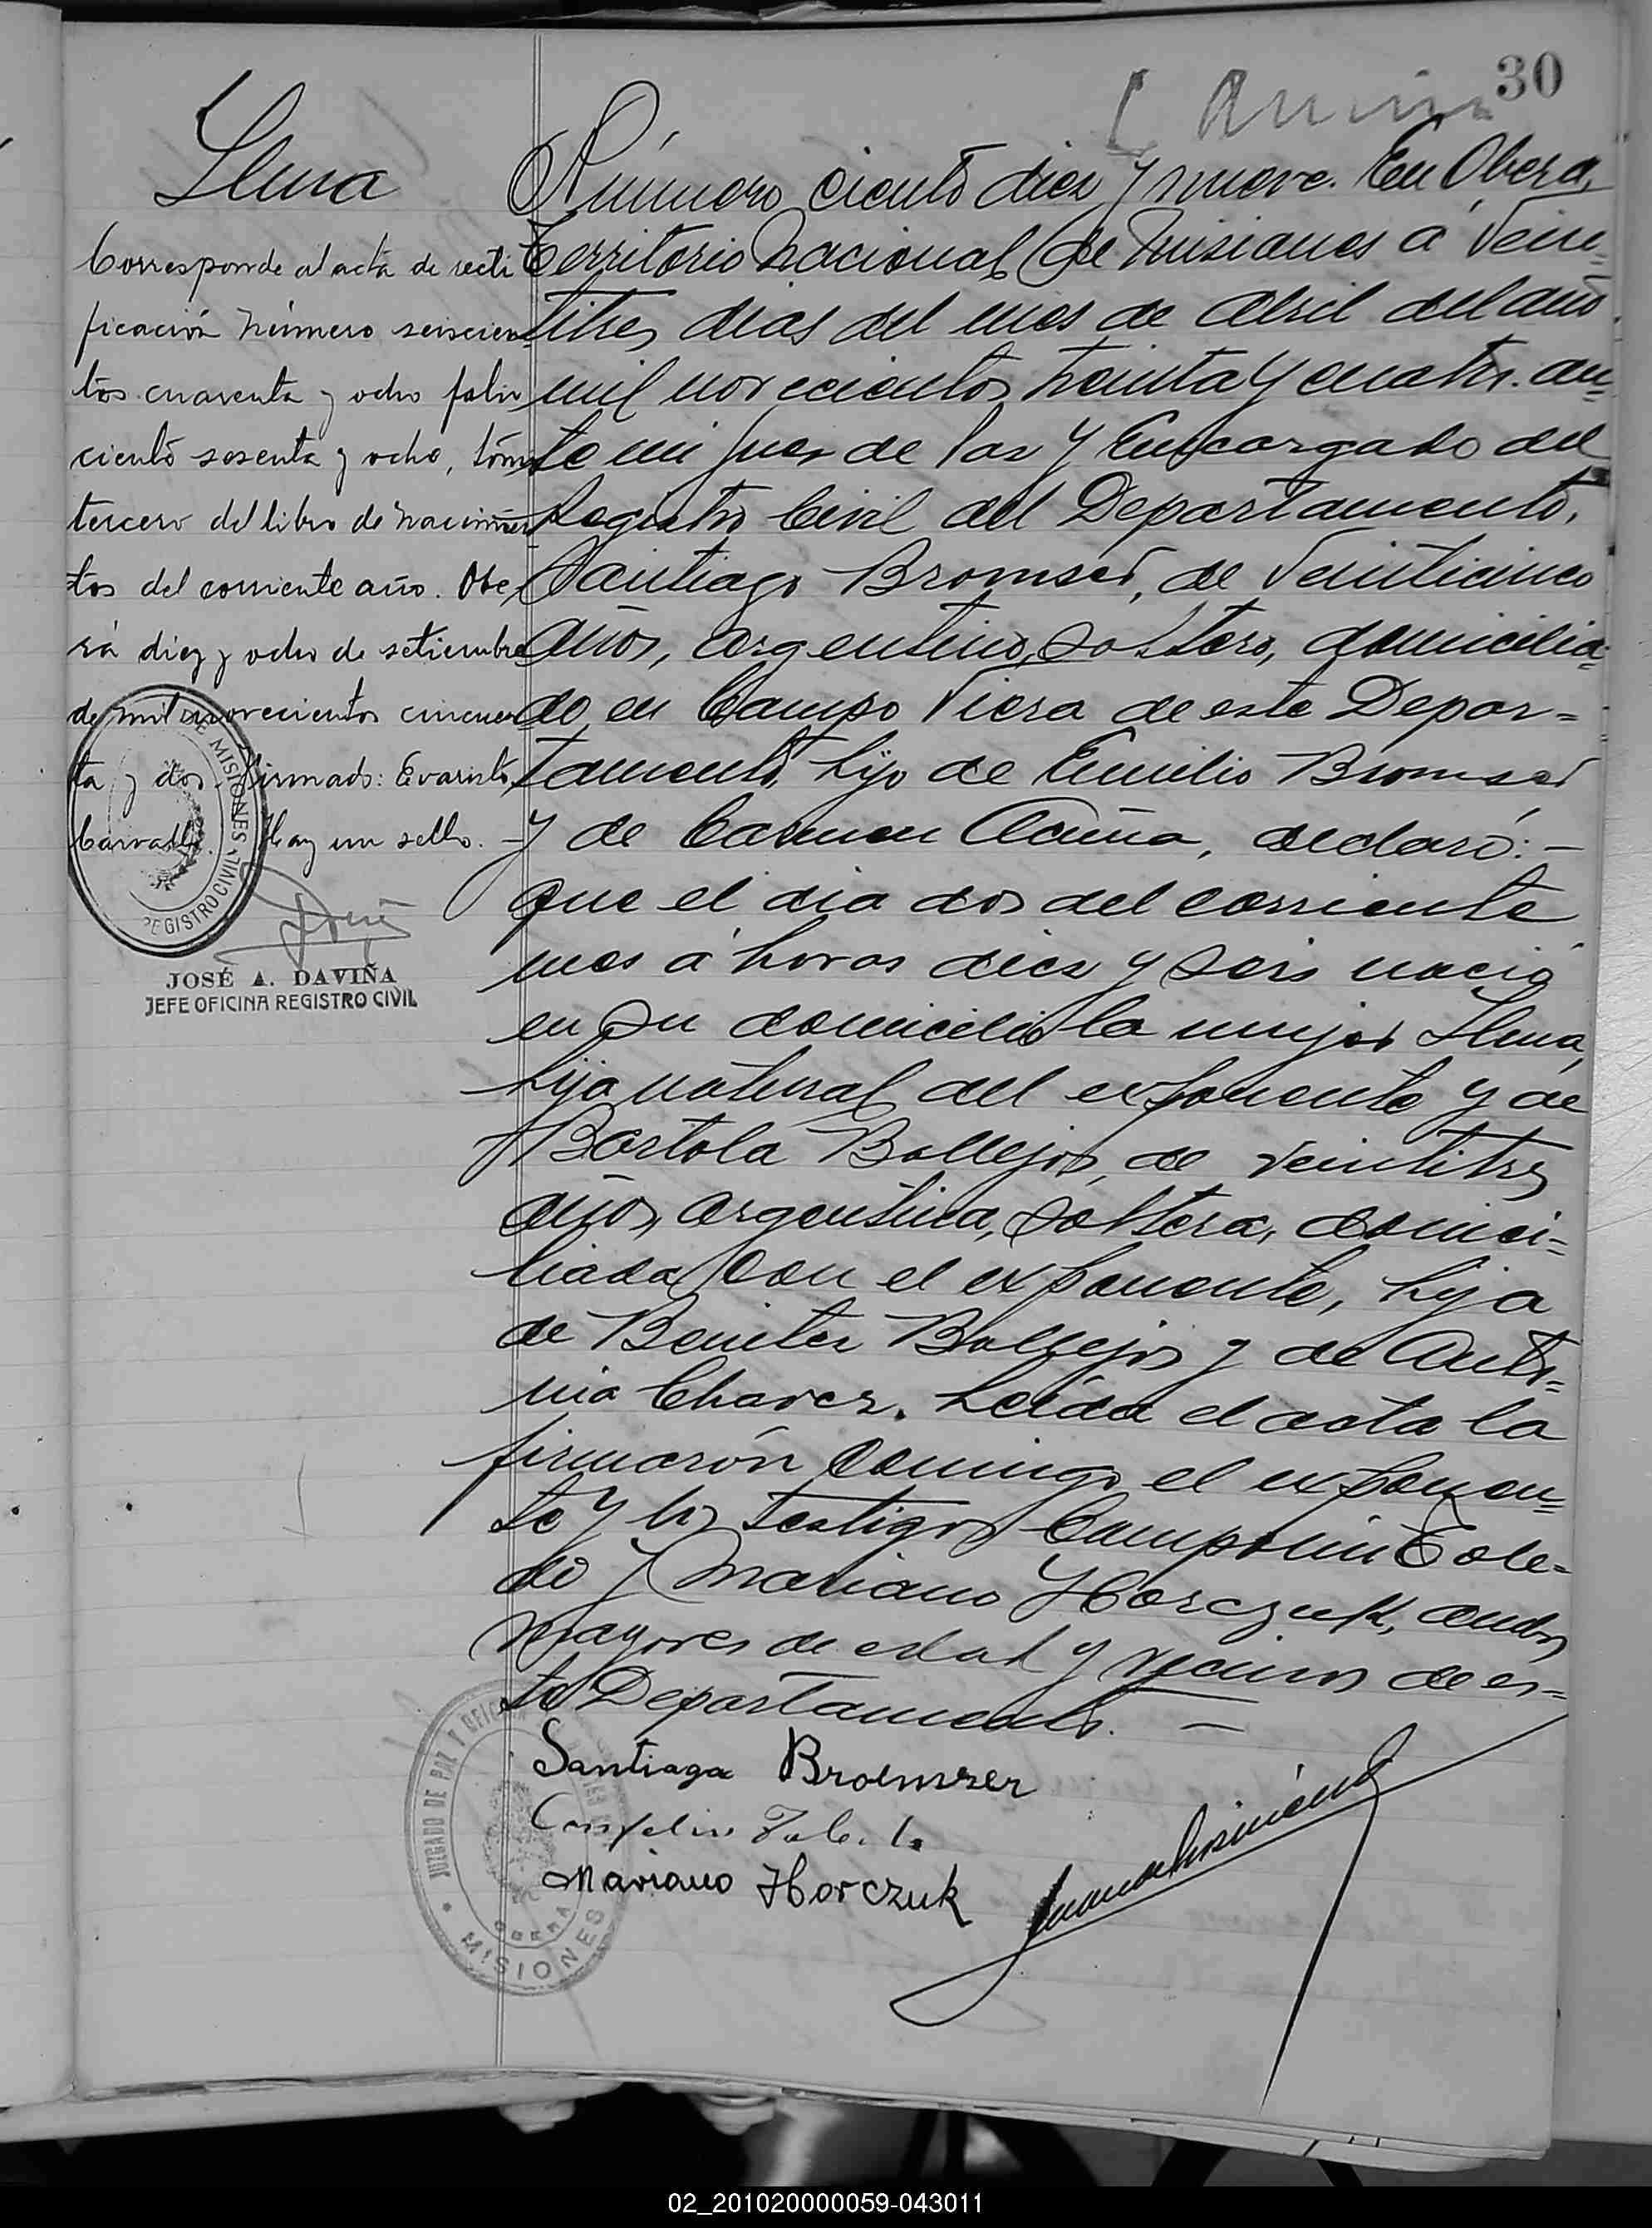 30
Ilma
Número ciento diez y nueve. En Oberá,
Territorio Nacional de Misiones a Vein-
titres dias del mes de Abril del año
mil novecientos treinta y cuatro. an=
te mi Juez de Paz y Encargado del
Registro Civil del Departamento,
Santiago Bromser, de Veinticinco
años, argentino, soltero, domicilia-
do en Campo Viera de este Depar=
tamento, hijo de Emilio Bromser
y de Carmen Acuña, declaró: -
que el dia dos del corriente
mes á horas diez y seis nació
en su domicilio la mujer Ilma,
hija natural del exponente y de
Bartola Ballejos, de veintitres
años, argentina, soltera, domici=
liada con el exponente, hija
de Benitez Ballejos y de Anto=
nia Chavez. Leída el acta la
firmarón conmigo el exponen=
te y los testigos Campolin Tole=
do y Mariano Horczuk, ambos
mayores de edad y vecinos de es=
te Departamento. —
Santiago Broemser
Mariano Horczuk
Corresponde al acta de recti
ficación número seiscien-
tos cuarenta y ocho folio
ciento sesenta y ocho, tomo
tercero del libro de nacimien-
tos del corriente año. Obe-
rá diez y ocho de setiembre
de mil novecientos cincuen-
ta y dos. Firmado: Evaristo
Carvallo. Hay un sello.
DE MISIONES
REGISTRO CIVIL
JOSÉ A. DAVIÑA
JEFE OFICINA REGISTRO CIVIL
JUZGADO DE PAZ Y
OBERA
MISIONES
02_201020000059-043011